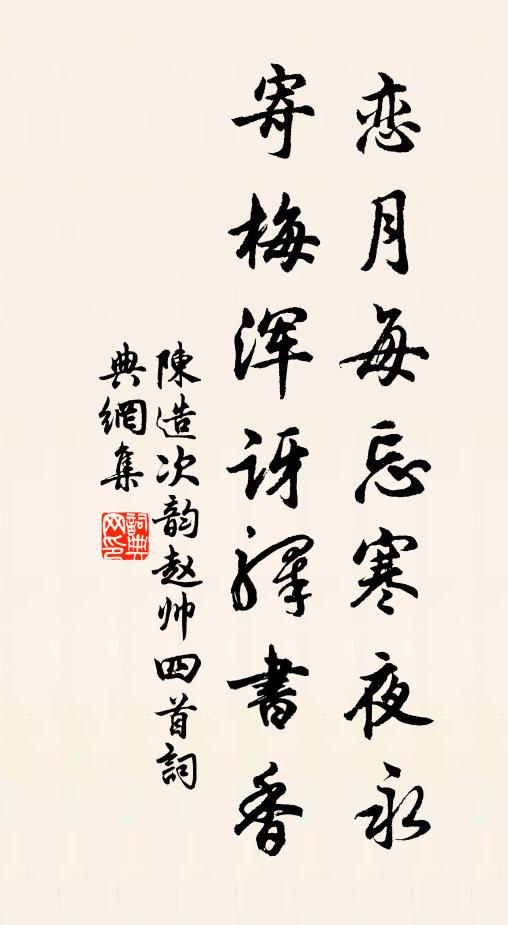 恋月每忘寒夜永
寄梅浑讶驿書香
陳造次韵赵帅四首詞
典網集
詞典
网印